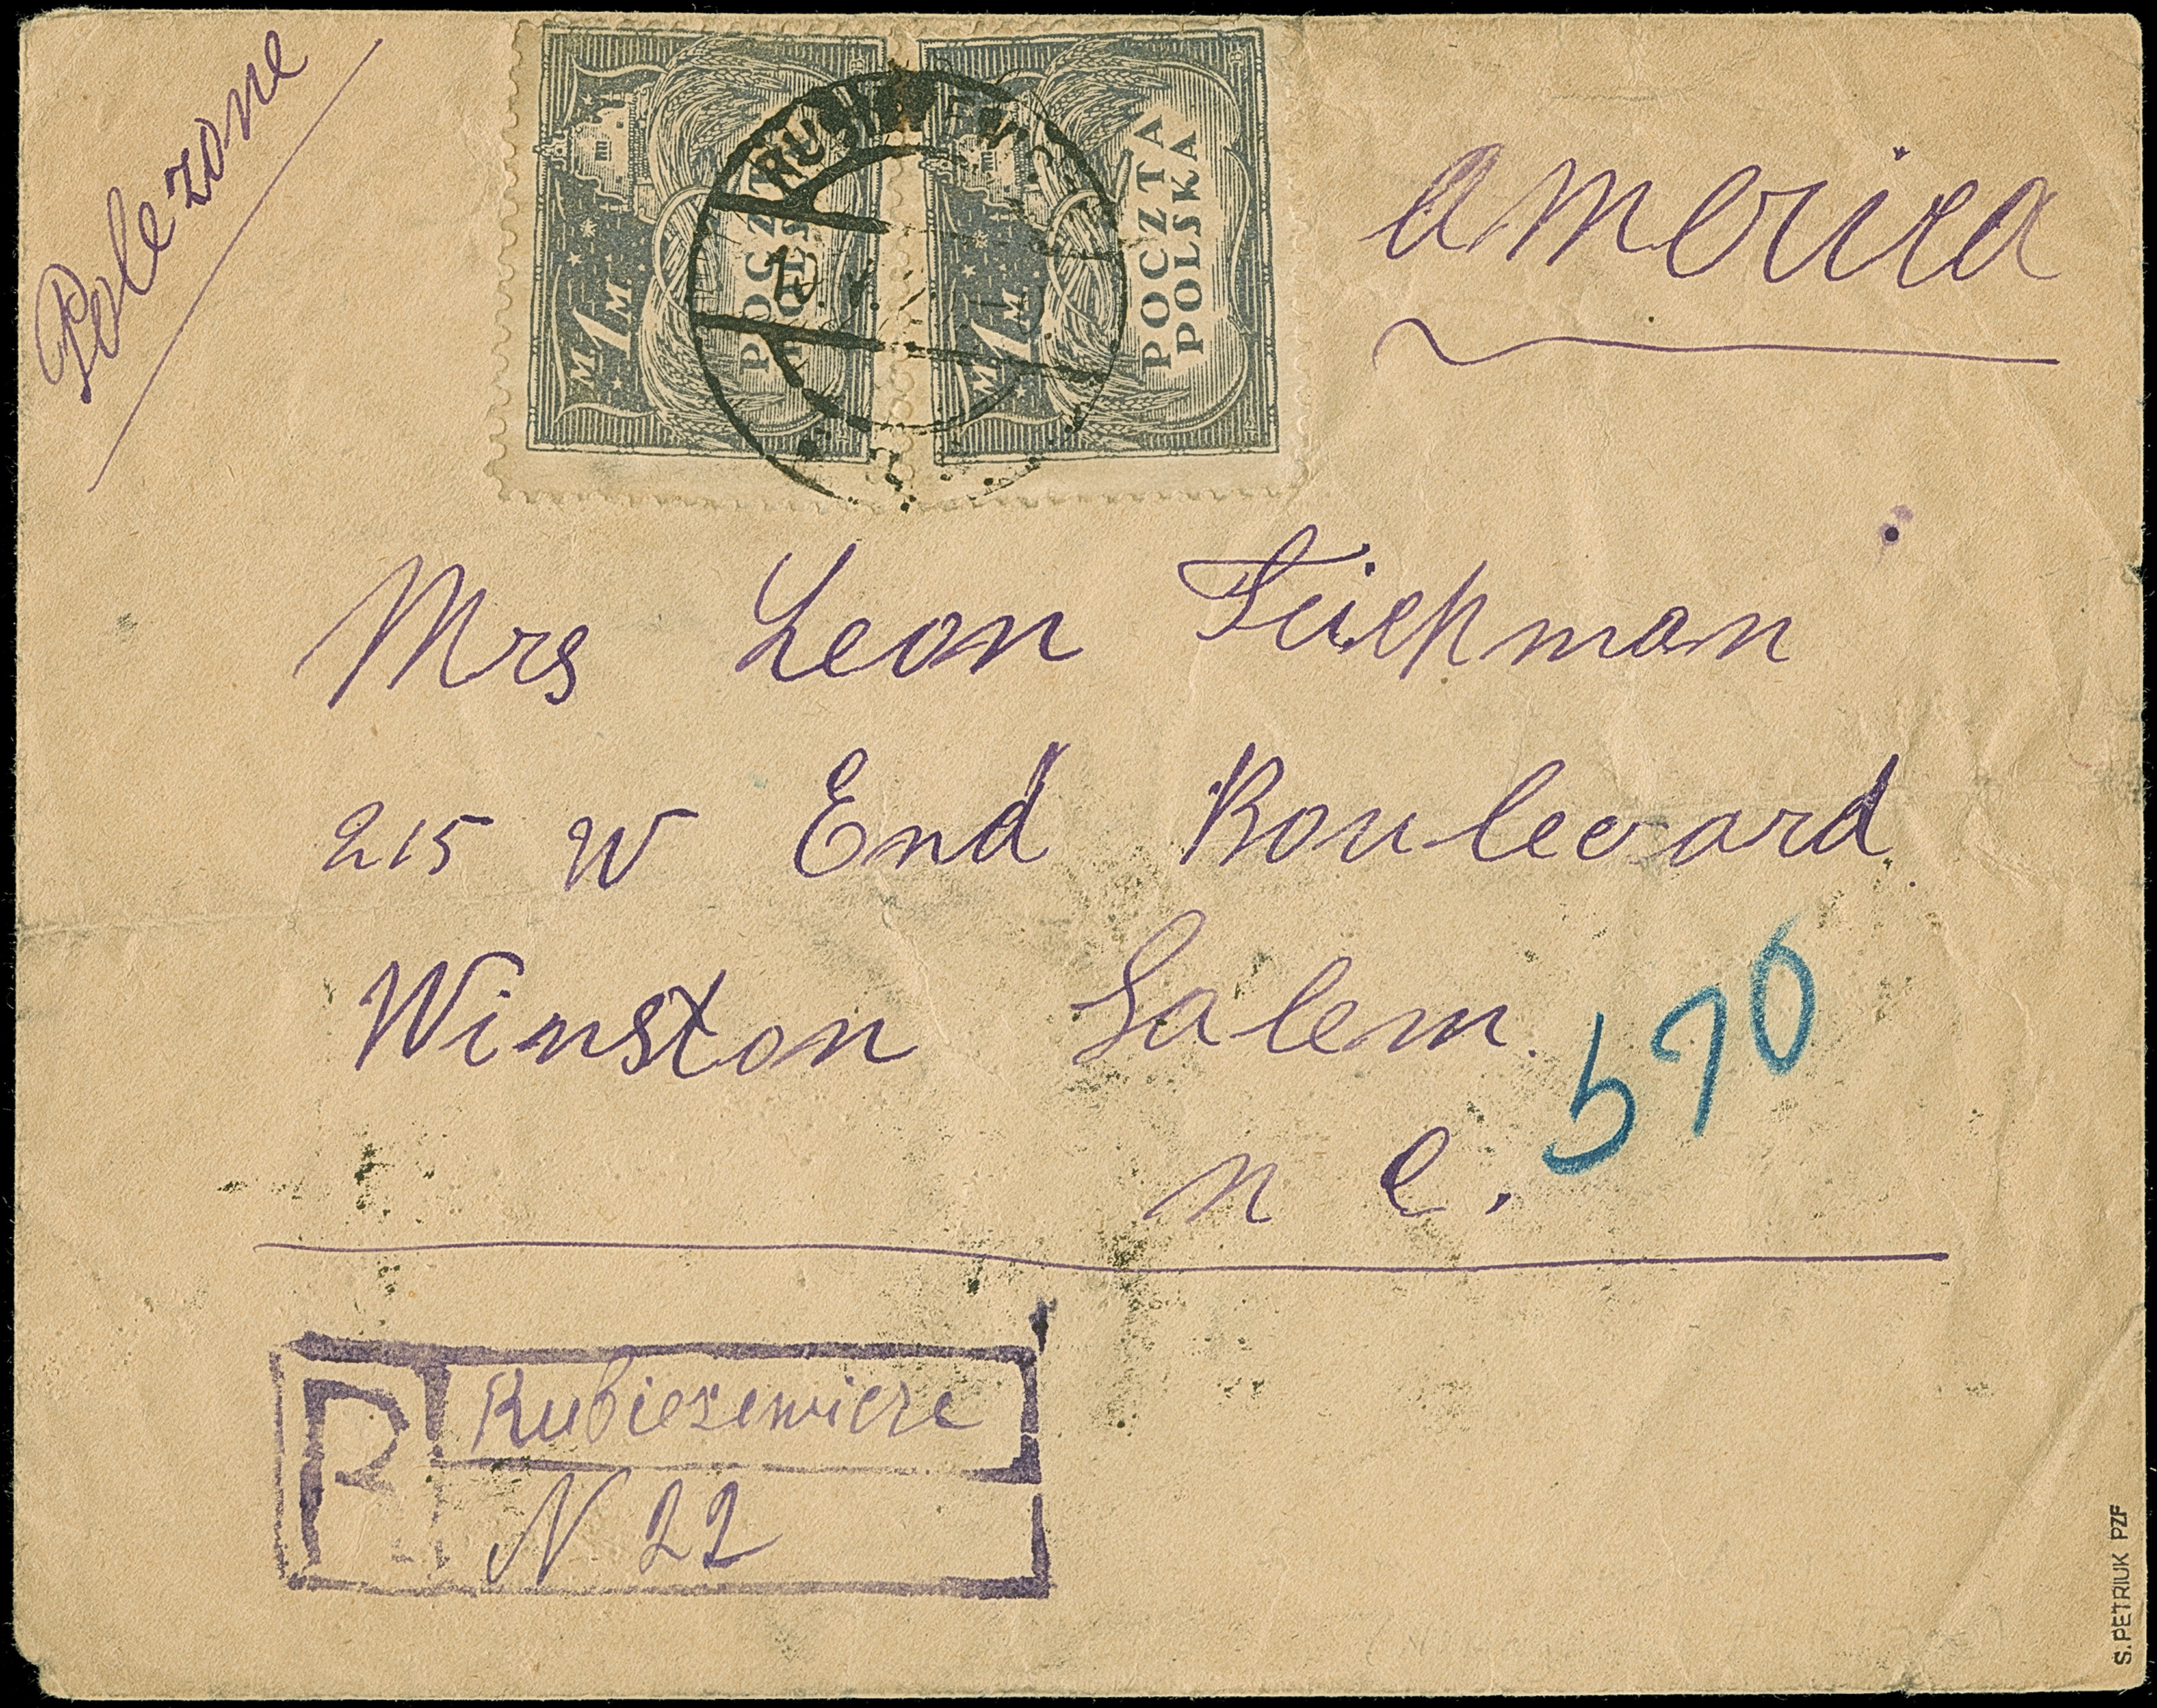 Polezone
America
M 1 M
POCZTA
POLSKA
M 1 M
POCZTA
POLSKA
Mrs Leon
215 W End Boulevard
Winston Salem
N C.
570
R
Rubieżewicze
N 22
S. PETRIUK PZF